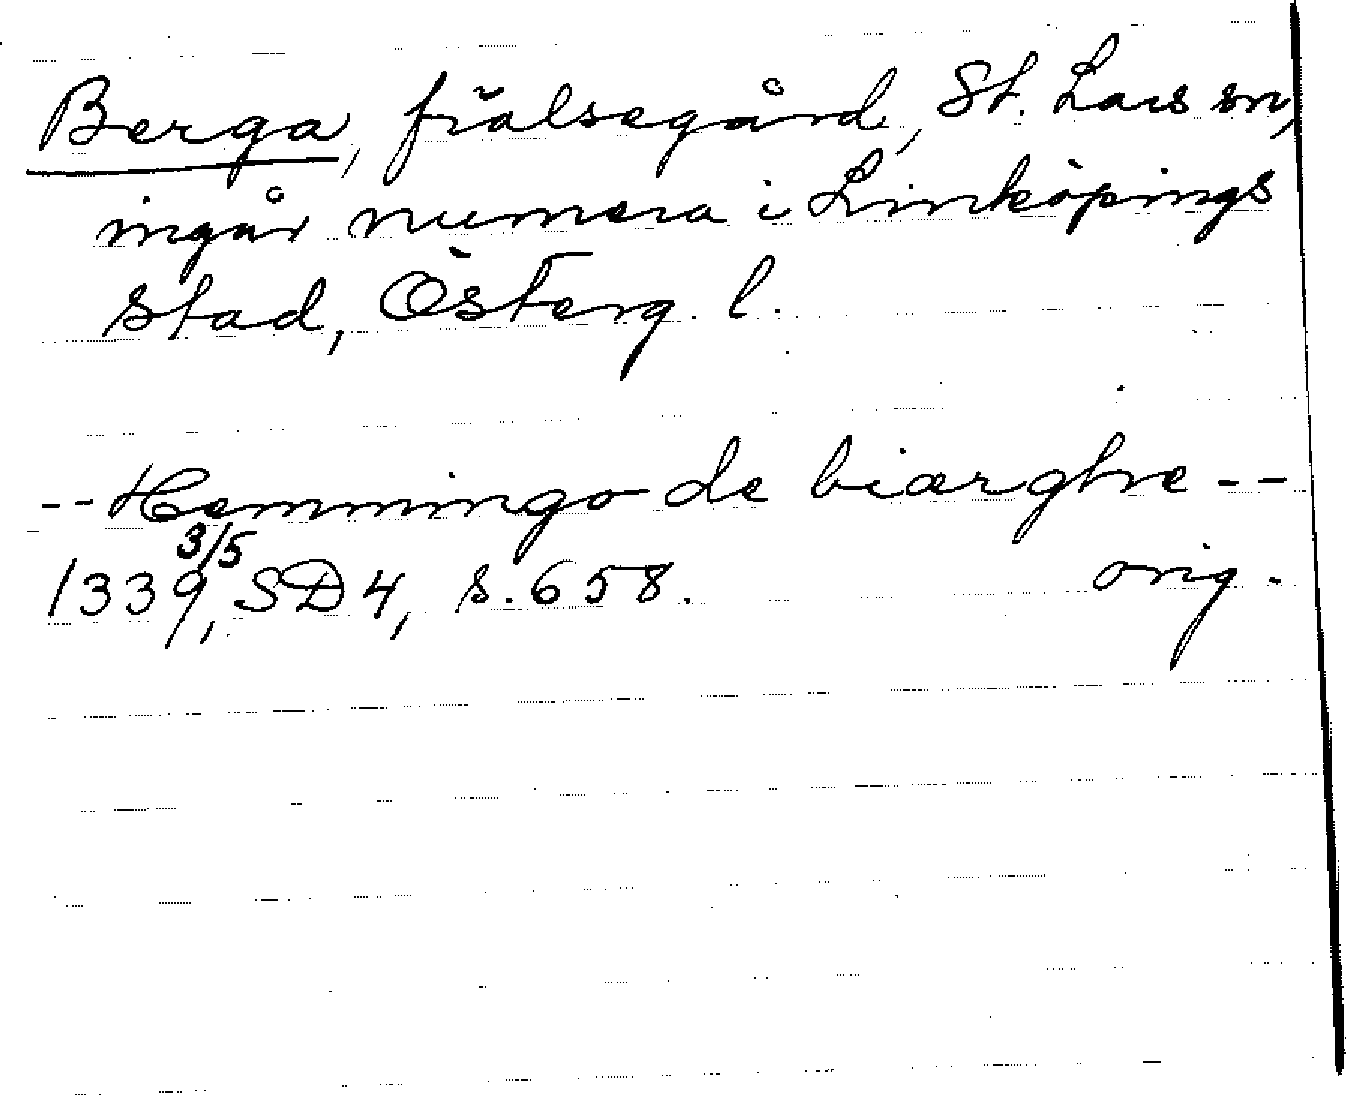 Berga, frälsegård, St. Lars sn,
ingår numera i Linköpings
stad, Österg. l.
-- Hemmingo de biærghe --
1339 3/5, SD 4, s. 658. orig.